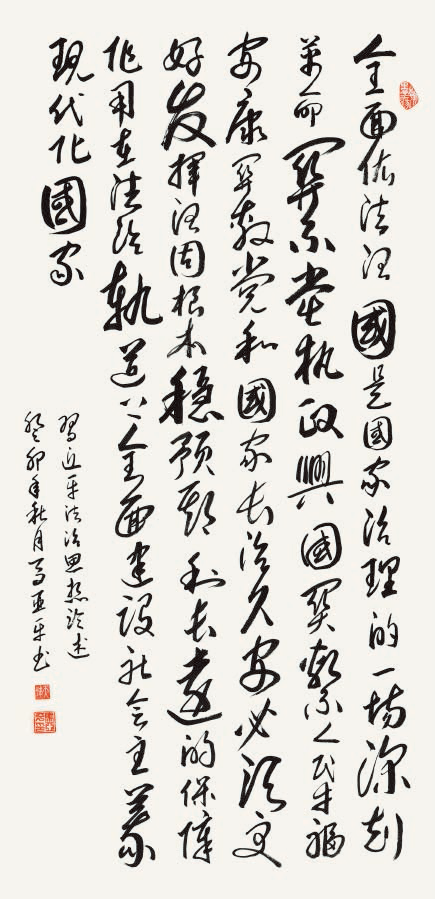 全面依法治國是國家治理的一场深刻
革命關系党执政興國關系人民幸福
安康關系党和國家长治久安必须更
好发揮法治固根本稳预期利长远的保障
作用在法治轨道上全面建设社会主義
现代化國家
習近平法治思想论述
癸卯年秋月马亚平书